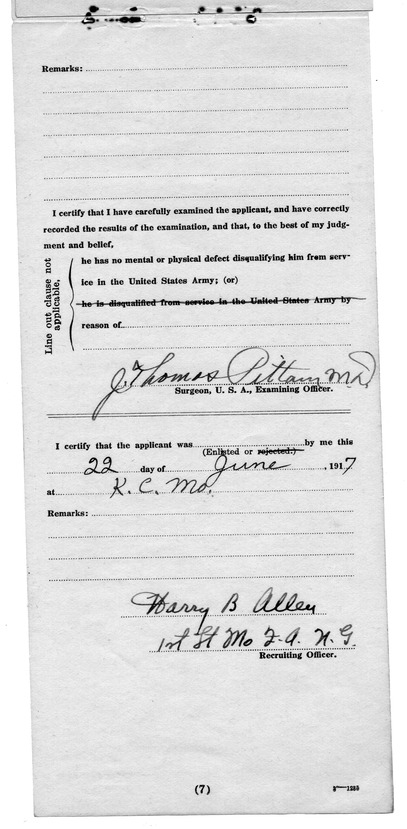 Remarks:
I certify that I have carefully examined the applicant, and have correctly
recorded the results of the examination, and that, to the best of my judg-
ment and belief,
Line out clause not
applicable.
he has no mental or physical defect disqualifying him from serv-
ice in the United States Army; (or)
he is disqualified from service in the United States Army by
reason of
J. Thomas Pittam M.D.
Surgeon, U. S. A., Examining Officer.
I certify that the applicant was by me this
(Enlisted or rejected.)
22 day of June, 1917
at K. C. Mo.
Remarks:
Harry B Allen
1st Lt Mo F. A. N. G.
Recruiting Officer.
(7)
3—1233